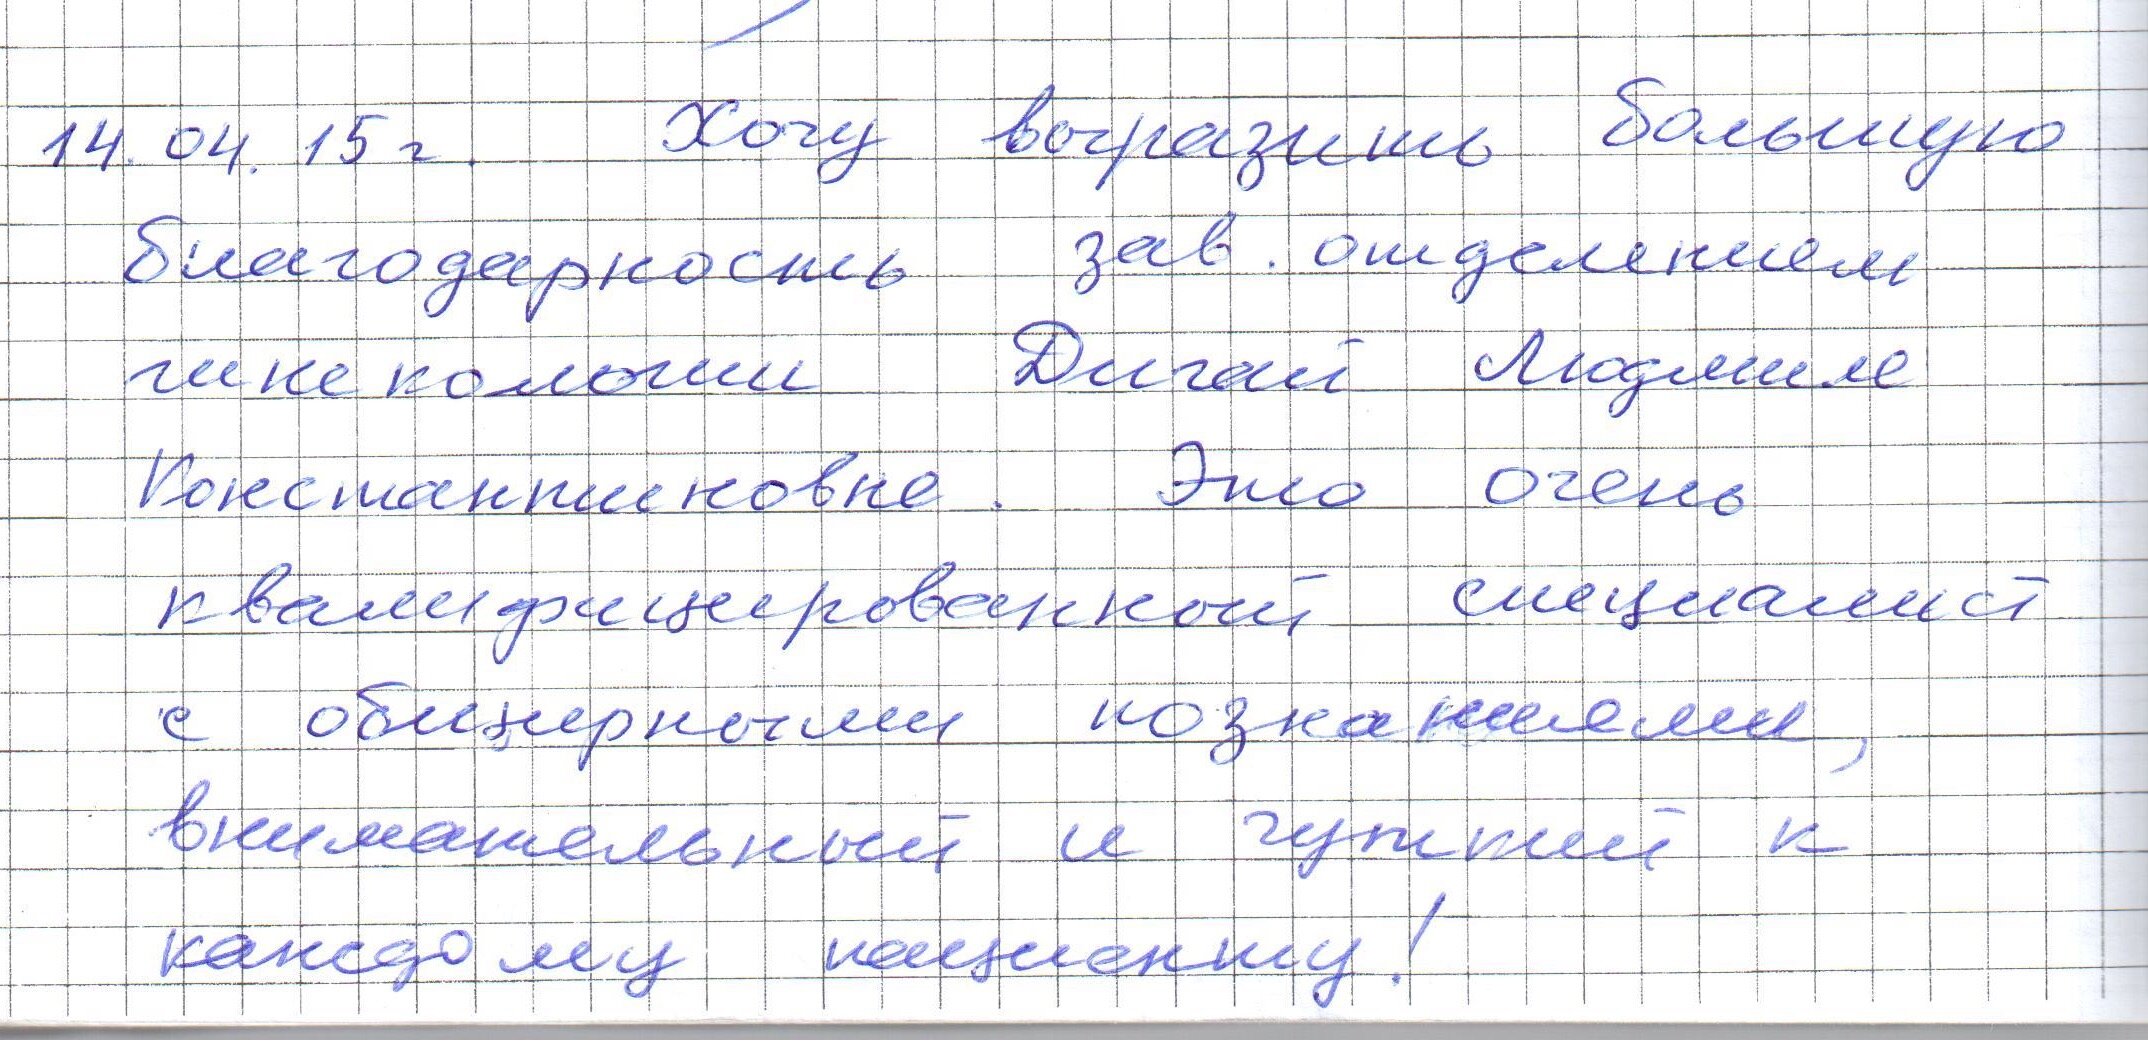 14.04.15г. Хочу выразить большую
благодарность зав. отделением
гинекологии Дигай Людмиле
Константиновне. Это очень
квалифицированный специалист
с обширными познаниями,
внимательный и чуткий к
каждому пациенту!